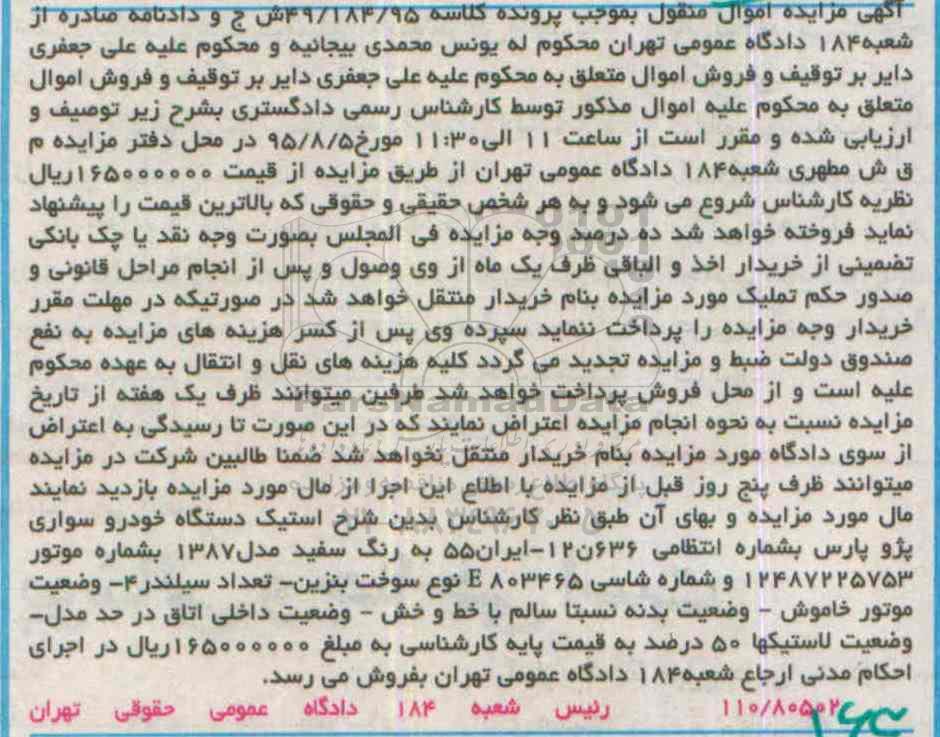 آگهی مزایده اموال منقول بموجب پرونده کلاسه ۴۹/۱۸۴/۹۵ش ج و دادنامه صادره از
شعبه۱۸۴ دادگاه عمومی تهران محکوم له یونس محمدی بیجانیه و محکوم علیه علی جعفری
دایر بر توقیف و فروش اموال متعلق به محکوم علیه علی جعفری دایر بر توقیف و فروش اموال
متعلق به محکوم علیه اموال مذکور توسط کارشناس رسمی دادگستری بشرح زیر توصیف و
ارزیابی شده و مقرر است از ساعت ۱۱ الی۱۱:۳۰ مورخ۹۵/۸/۵ در محل دفتر مزایده م
ق ش مطهری شعبه۱۸۴ دادگاه عمومی تهران از طریق مزایده از قیمت ۱۶۵۰۰۰۰۰۰ریال
نظریه کارشناس شروع می شود و به هر شخص حقیقی و حقوقی که بالاترین قیمت را پیشنهاد
نماید فروخته خواهد شد ده درصد وجه مزایده فی المجلس بصورت وجه نقد یا چک بانکی
تضمینی از خریدار اخذ و الباقی ظرف یک ماه از وی وصول و پس از انجام مراحل قانونی و
صدور حکم تملیک مورد مزایده بنام خریدار منتقل خواهد شد در صورتیکه در مهلت مقرر
خریدار وجه مزایده را پرداخت ننماید سپرده وی پس از کسر هزینه های مزایده به نفع
صندوق دولت ضبط و مزایده تجدید می گردد کلیه هزینه های نقل و انتقال به عهده محکوم
علیه است و از محل فروش پرداخت خواهد شد طرفین میتوانند ظرف یک هفته از تاریخ
مزایده نسبت به نحوه انجام مزایده اعتراض نمایند که در این صورت تا رسیدگی به اعتراض
از سوی دادگاه مورد مزایده بنام خریدار منتقل نخواهد شد ضمنا طالبین شرکت در مزایده
میتوانند ظرف پنج روز قبل از مزایده با اطلاع این اجرا از مال مورد مزایده بازدید نمایند
مال مورد مزایده و بهای آن طبق نظر کارشناس بدین شرح استیک دستگاه خودرو سواری
پژو پارس بشماره انتظامی ۶۳۶ن۱۲-ایران۵۵ به رنگ سفید مدل۱۳۸۷ بشماره موتور
۱۲۴۸۷۲۲۵۷۵۳ و شماره شاسی E ۸۰۳۴۶۵ نوع سوخت بنزین- تعداد سیلندر۴- وضعیت
موتور خاموش - وضعیت بدنه نسبتا سالم با خط و خش - وضعیت داخلی اتاق در حد مدل-
وضعیت لاستیکها ۵۰ درصد به قیمت پایه کارشناسی به مبلغ ۱۶۵۰۰۰۰۰۰ریال در اجرای
احکام مدنی ارجاع شعبه۱۸۴ دادگاه عمومی تهران بفروش می رسد.
۱۱۰/۸۰۵۰۲ رئیس شعبه ۱۸۴ دادگاه عمومی حقوقی تهران
ParsNamadData